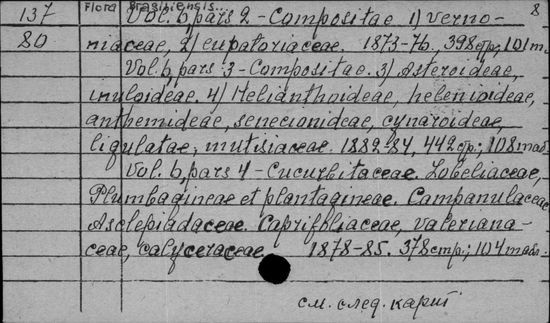 137 Flora Brasiliensis... 8
80 Vol. 6, pars 2 - Compositae 1) verno-
niaceae, 2) eupatoriaceae. 1873-76, 398 стр.; 101 т.
Vol. 6, pars 3 - Compositae. 3) Asteroideae,
inuloideae. 4) Helianthoideae, helenioideae,
anthemideae, senecionideae, cynaroideae,
ligulatae, mutisiaceae. 1882-84, 442 стр.; 108 табл.
Vol. 6, pars 4 - Cucurbitaceae. Lobeliaceae,
Plumbagineae et plantagineae. Campanulaceae
Asclepiadaceae. Caprifoliaceae, valeriana-
ceae, calyceraceae. 1878-85. 378 стр.; 104 табл.
см. след. карт